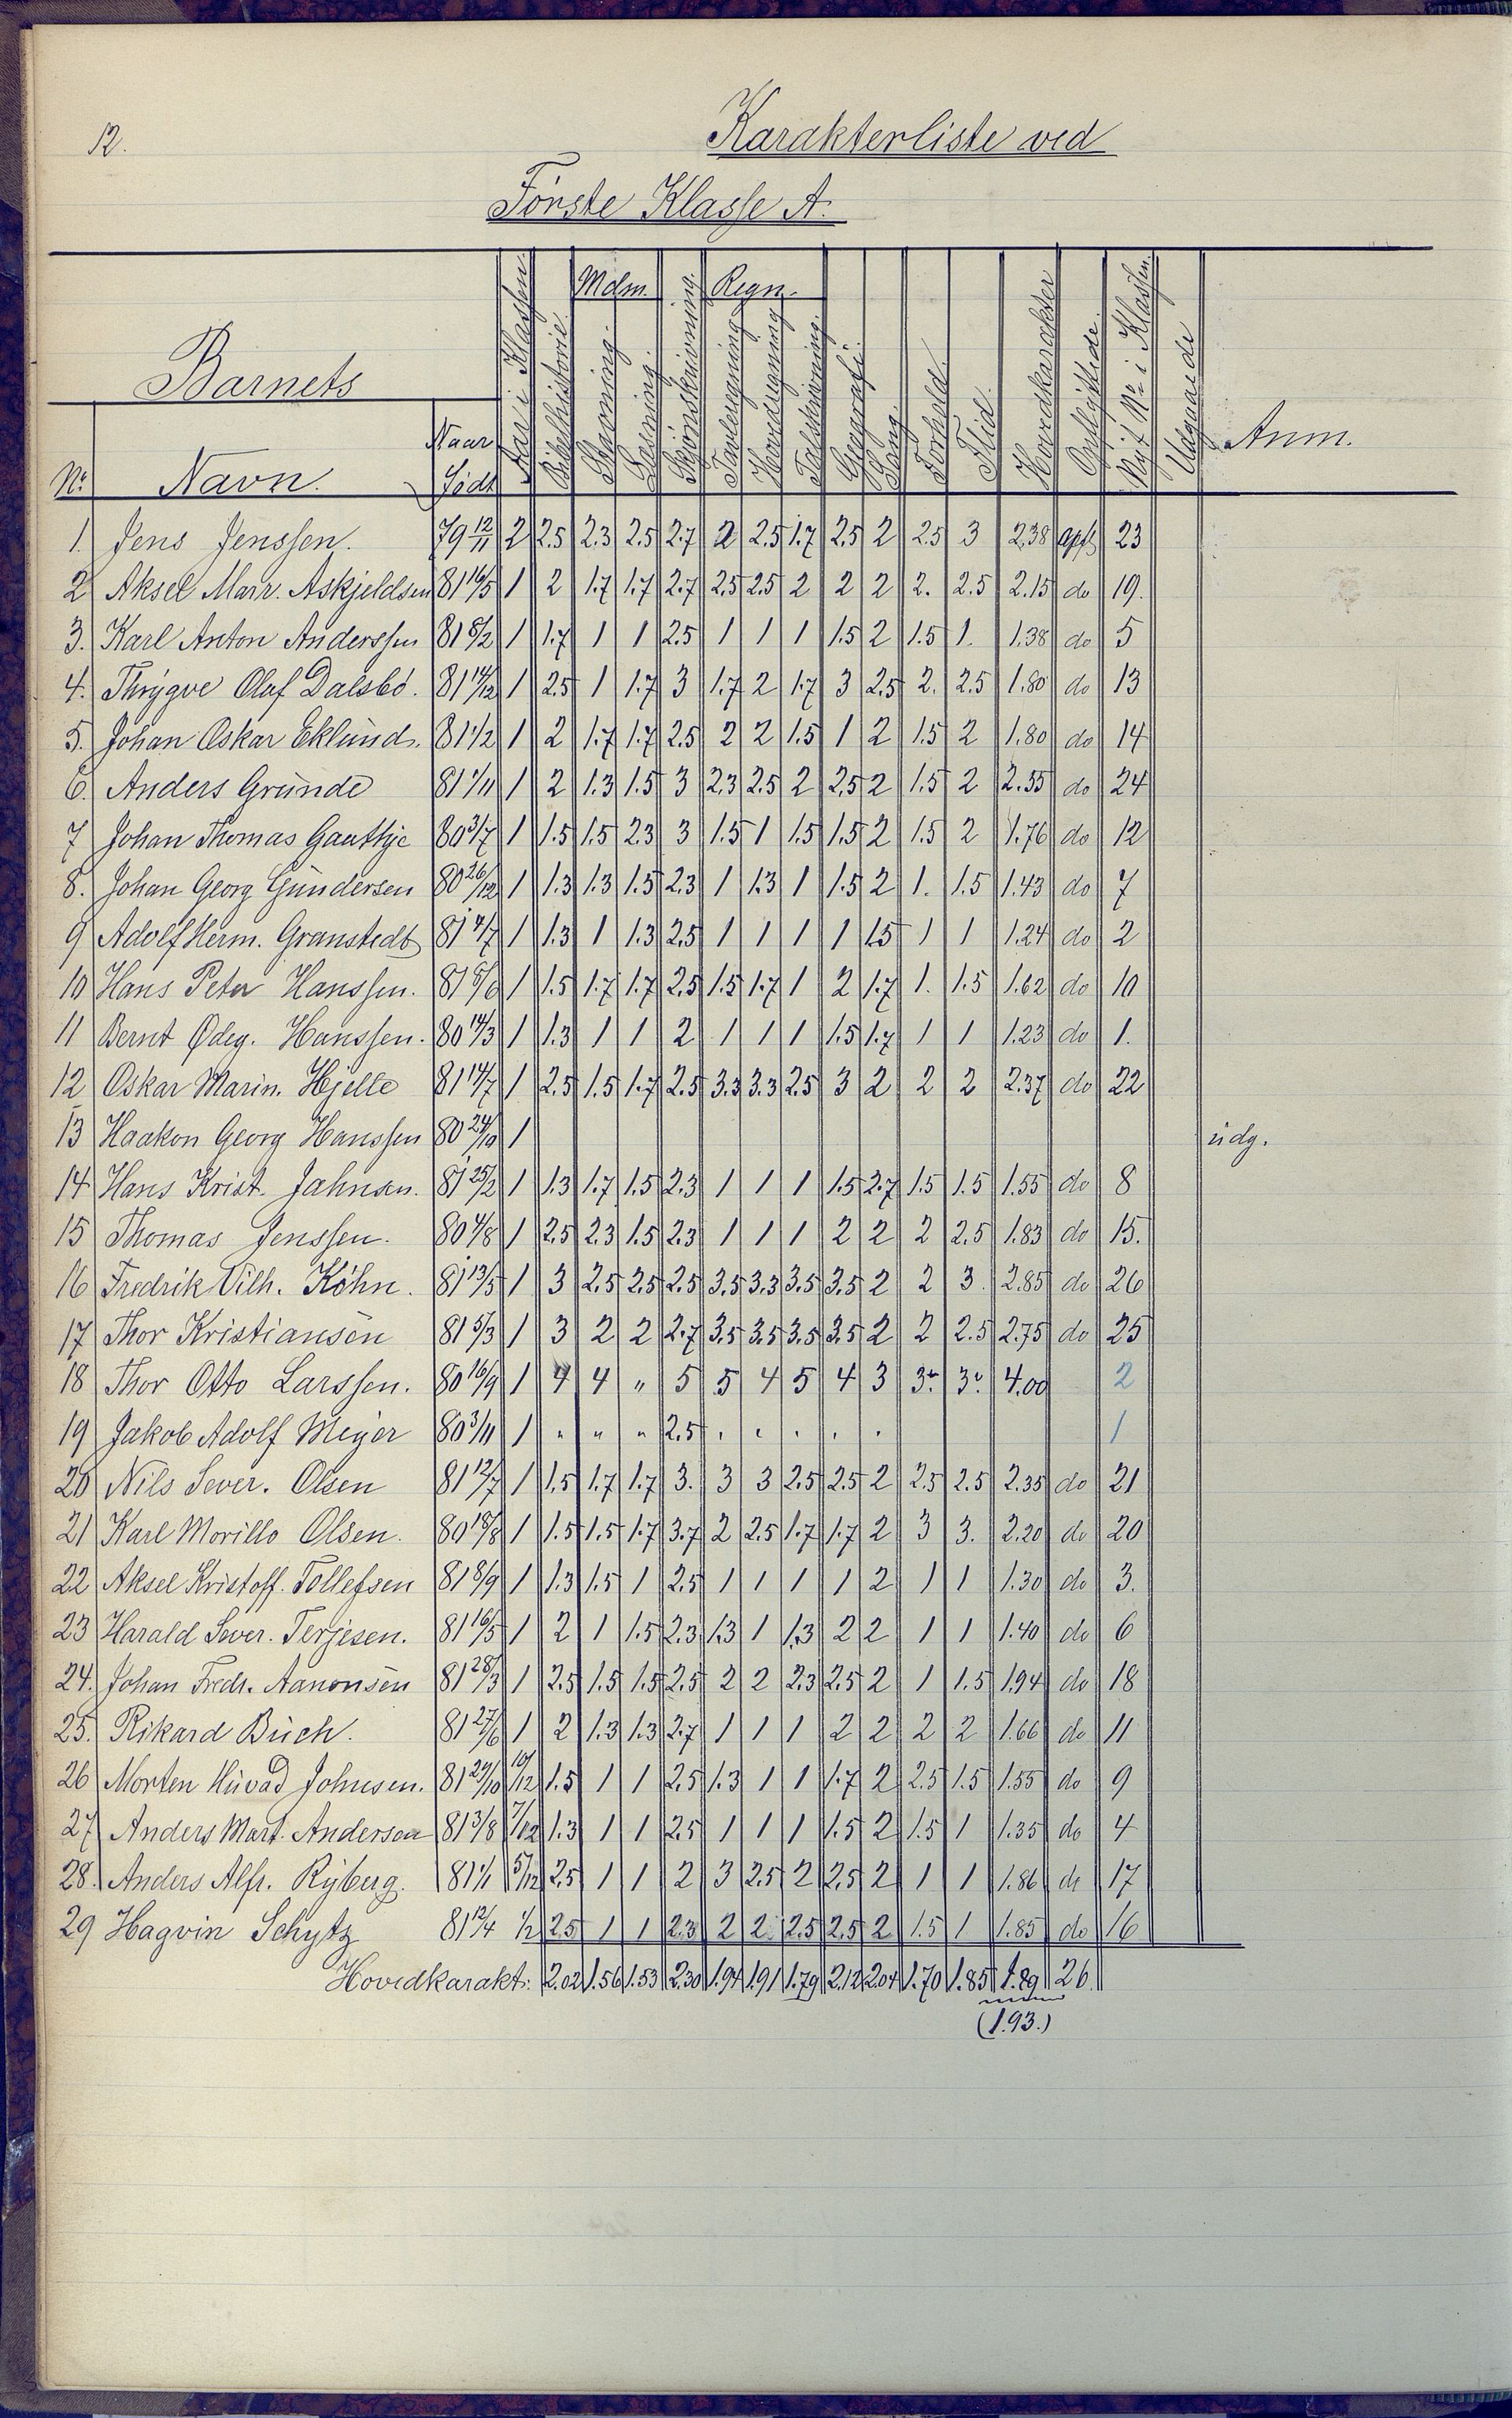 12.
Karakterliste ved
Første Klasse A.
Barnets
Nr. Navn. Naar Født Aar i Klassen. Bibelhistorie. Mdsm. Stavning. Læsning. Skjønskrivning. Regn. Tavleregning Hovedregning Talskrivning. Geografi. Sang. Forhold Flid. Hovedkarakter Opflyttede Nyt Nr. i Klassen. Udgaaede Anm.
1. Jens Jenssen. 79 12/11 2 2.5 2.3 2.5 2.7 2 2.5 1.7 2.5 2 2.5 3 2.38 opfl. 23
2 Aksel Marr. Askjeldsen 81 16/5 1 2 1.7 1.7 2.7 2.5 2.5 2 2 2 2. 2.5 2.15 do 19.
3. Karl Anton Anderssen 81 8/2 1 1.7 1 1 2.5 1 1 1 1.5 2 1.5 1. 1.38 do 5
4. Thrygve Olaf Dalsbö. 81 14/12 1 2.5 1 1.7 3 1.7 2 1.7 3 2.5 2. 2.5 1.80 do 13
5. Johan Oskar Eklund. 81 1/2 1 2 1.7 1.7 2.5 2 2 1.5 1 2 1.5 2 1.80 do 14
6. Anders Grunde 81 1/11 1 2 1.3 1.5 3 2.3 2.5 2 2.5 2 1.5 2 2.55 do 24
7 Johan Thomas Gauthje 80 3/7 1 1.5 1.5 2.3 3 1.5 1 1.5 1.5 2 1.5 2 1.76 do 12
8. Johan Georg Gundersen 80 26/12 1 1.3 1.3 1.5 2.3 1 1.3 1 1.5 2 1. 1.5 1.43 do 7
9 Adolf Herm. Granstedt 81 4/7 1 1.3 1 1.3 2.5 1 1 1 1 1.5 1 1 1.24 do 2
10 Hans Peter Hanssen. 81 8/6 1 1.5 1.7 1.7 2.5 1.5 1.7 1 2 1.7 1. 1.5 1.62 do 10
11 Bernt Ødeg. Hanssen. 80 14/3 1 1.3 1 1 2 1 1 1 1.5 1.7 1 1 1.23 do 1.
12 Oskar Marin. Hjelle 81 14/7 1 2.5 1.5 1.7 2.5 3.3 3.3 2.5 3 2 2 2 2.37 do 22
13 Haakon Georg Hanssen 80 24/10 1 udg.
14 Hans Krist. Jahnsen. 81 25/2 1 1.3 1.7 1.5 2.3 1 1 1 1.5 2.7 1.5 1.5 1.55 do 8
15 Thomas Jenssen. 80 4/8 1 2.5 2.3 1.5 2.3 1 1 1 2 2 2 2.5 1.83 do 15.
16 Fredrik Vilh. Köhn. 81 13/5 1 3 2.5 2.5 2.5 3.5 3.3 3.5 3.5 2 2 3. 2.85 do 26
17 Thor Kristiansen 81 5/3 1 3 2 2 2.7 3.5 3.5 3.5 3.5 2 2 2.5 2.75 do 25
18 Thor Otto Larssen. 80 16/9 1 4 4 " 5 5 4 5 4 3 3 3 4.00 2
19 Jakob Adolf Meyer 80 3/11 1 " " " 2.5 " " " " " 1
20 Nils Sever. Olsen 81 12/7 1 1.5 1.7 1.7 3. 3 3 2.5 2.5 2 2.5 2.5 2.35 do 21
21 Karl Morillo Olsen. 80 18/8 1 1.5 1.5 1.7 3.7 2 2.5 1.7 1.7 2 3 3. 2.20 do 20
22 Aksel Kristoff. Tollefsen 81 8/9 1 1.3 1.5 1 2.5 1 1 1 1 2 1 1 1.30 do 3.
23 Harald Sever. Terjesen. 81 16/5 1 2 1 1.5 2.3 1.3 1 1.3 2 2 1 1 1.40 do 6
24. Johan Fredr. Aanonsen 81 28/3 1 2.5 1.5 1.5 2.5 2 2 2.3 2.5 2 1 1.5 1.94 do 18
25. Rikard Buch. 81 27/6 1 2 1.3 1.3 2.7 1 1 1 2 2 2 2 1.66 do 11
26 Morten Huvad Johnsen. 81 29/10 10/12 1.5 1 1 2.5 1.3 1 1 1.7 2 2.5 1.5 1.55 do 9
27 Anders Mart. Andersen 81 3/8 7/12 1.3 1 1 2.5 1 1 1 1.5 2 1.5 1 1.35 do 4
28. Anders Alfr. Ryberg. 81 1/1 5/12 2.5 1 1 2 3 2.5 2 2.5 2 1 1 1.86 do 17
29 Hagvin Schytz 81 12/4 1/2 2.5 1 1 2.3 2 2 2.5 2.5 2 1.5 1 1.85 do 16
Hovedkarakt: 2.02 1.56 1.53 2.30 1.94 1.91 1.79 2.12 2.04 1.70 1.85 1.89 26.
(1.93.)